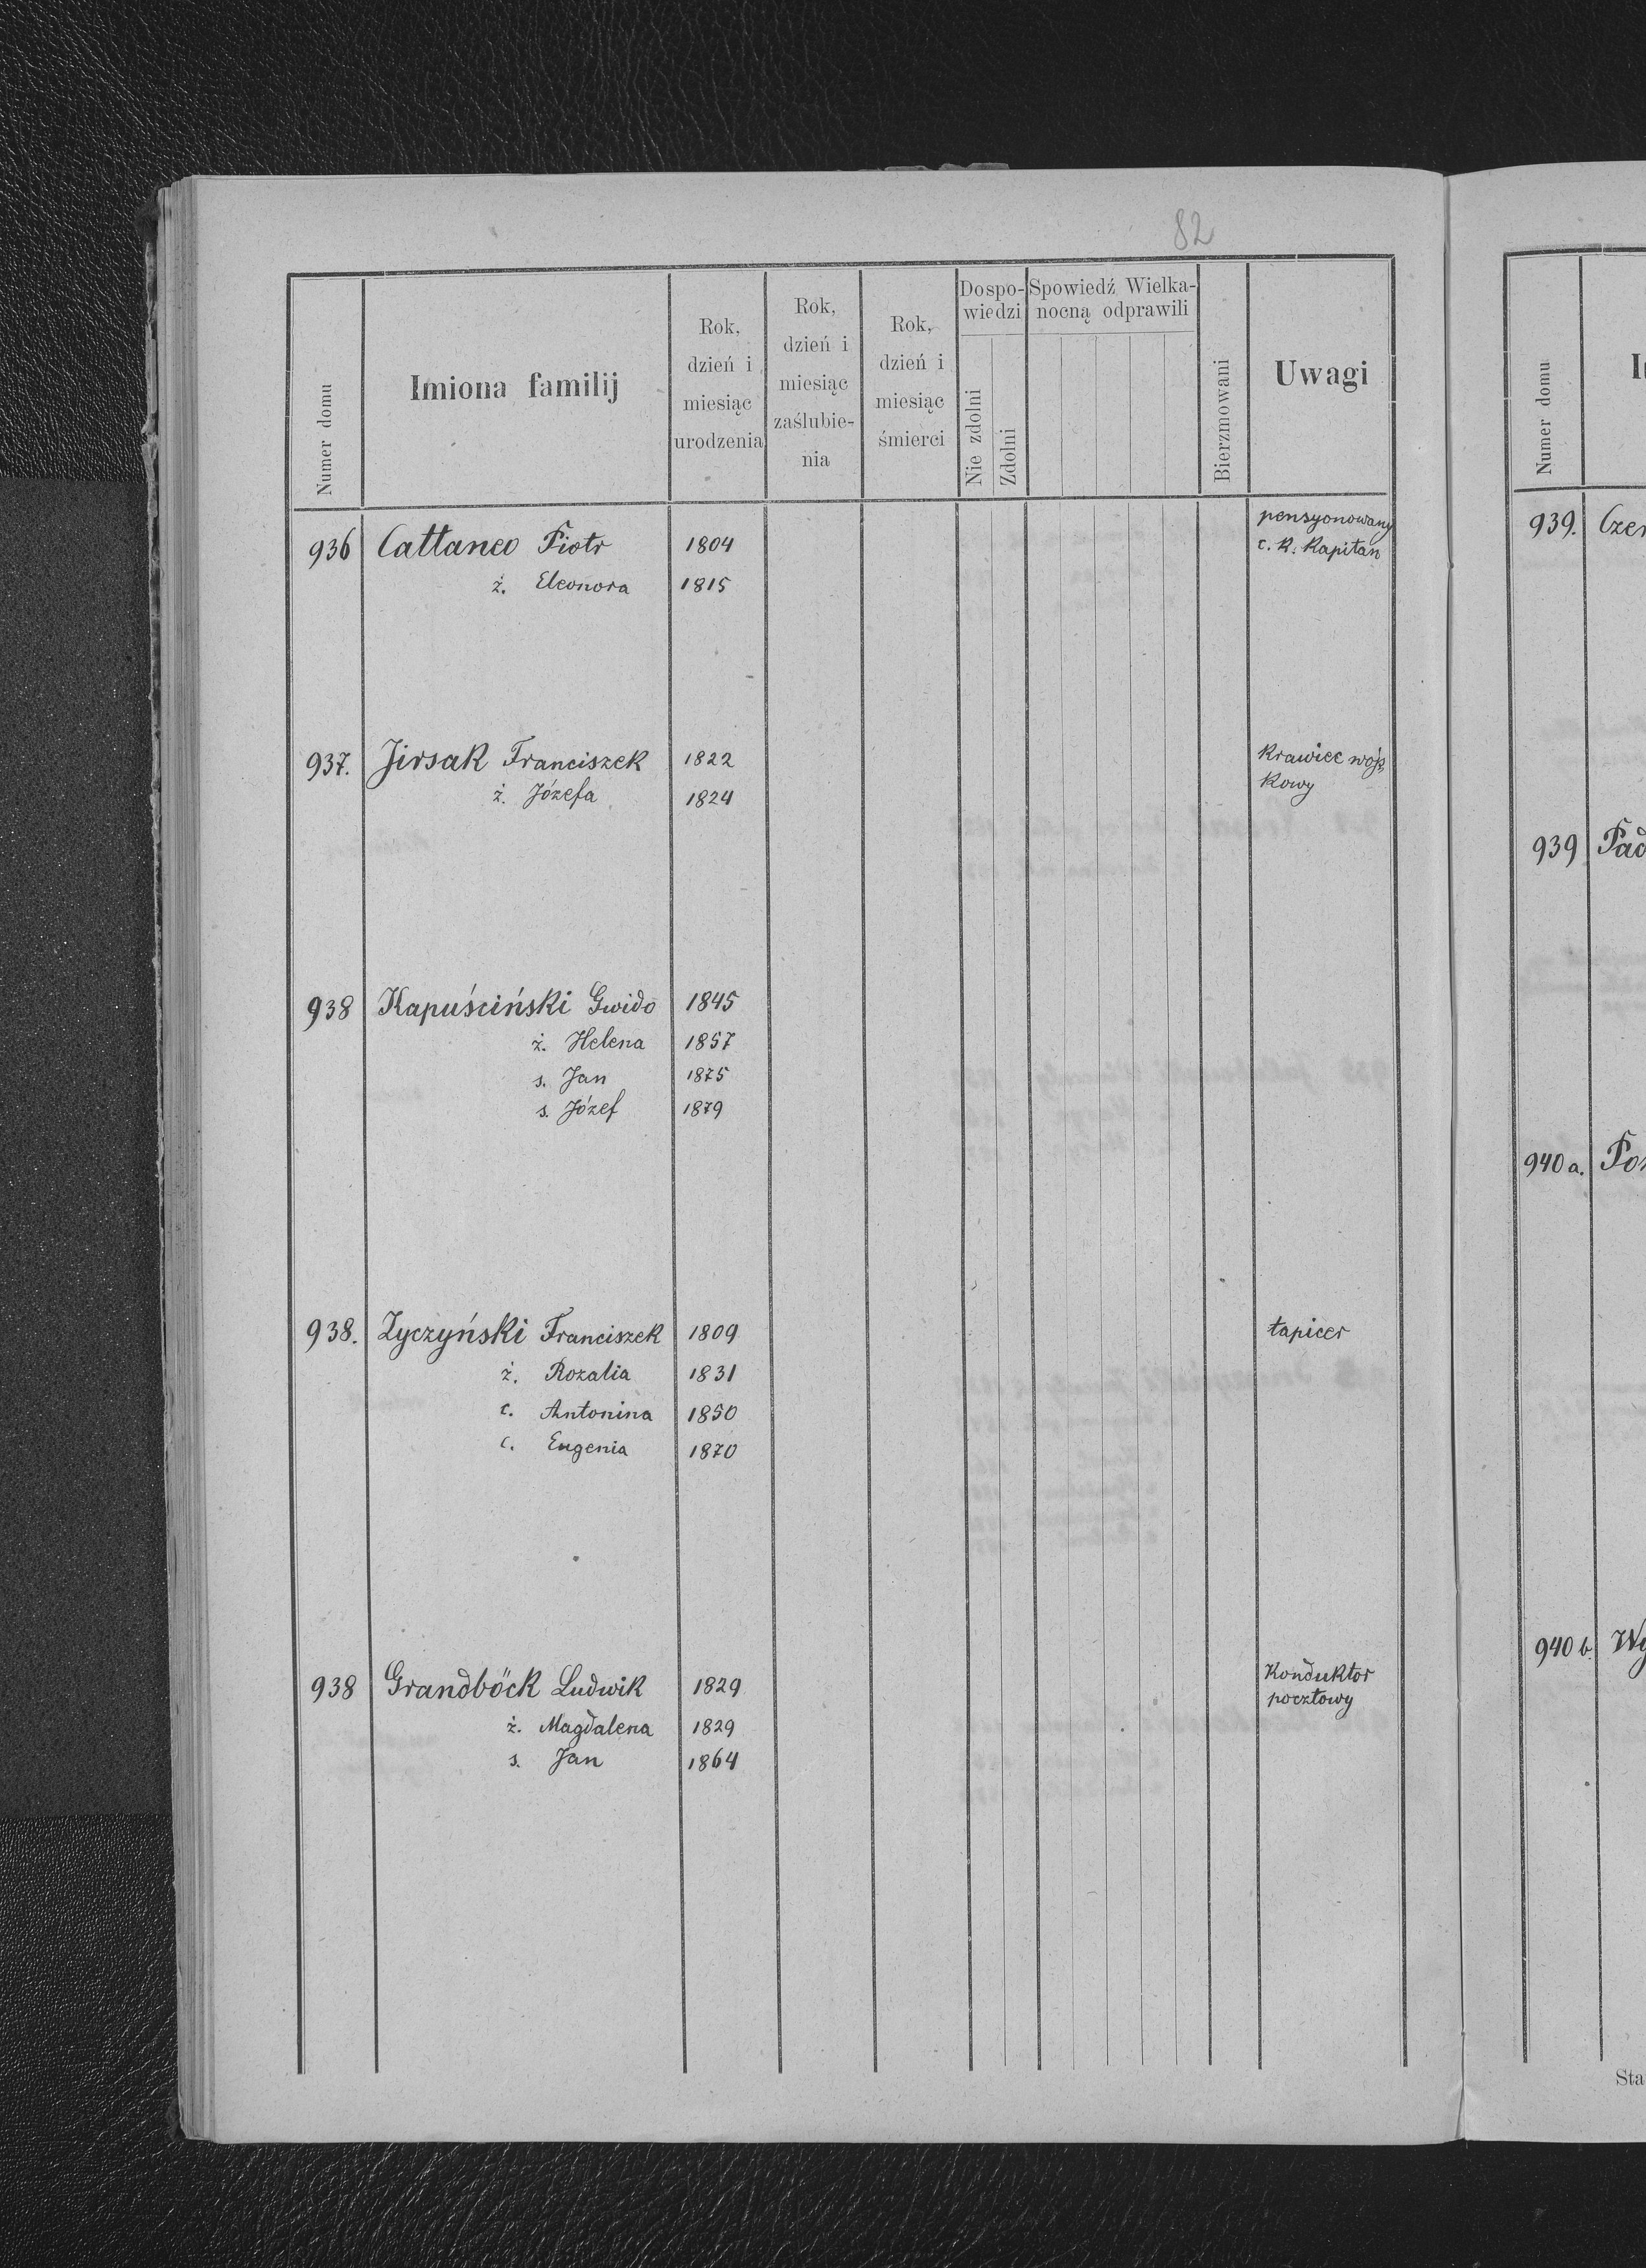 82
Numer domu
Imiona familij
Rok,
dzień i
miesiąc
urodzenia
Rok,
dzień i
miesiąc
zaślubie-
nia
Rok,
dzień i
miesiąc
śmierci
Dospo-
wiedzi
Nie zdolni
Zdolni
Spowiedź Wielka-
nocną odprawili
Bierzmowani
Uwagi
936 Cattaneo Piotr 1804 pensyonowany
c. k. Kapitan
ż. Eleonora 1815
937. Jirsak Franciszek 1822 Krawiec wojs
kowy
ż. Józefa 1824
938 Kapuściński Gwido 1845
ż. Helena 1857
s. Jan 1875
s. Józef 1879
938. Zyczyński Franciszek 1809 tapicer
ż. Rozalia 1831
c. Antonina 1850
c. Eugenia 1870
938 Grandböck Ludwik 1829 Konduktor
pocztowy
ż. Magdalena 1829
s. Jan 1864
Numer domu
939. Czer
939 Pad
940 a.
940 b. Wy
Sta